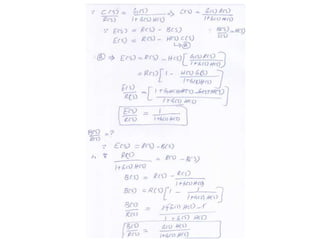 ∵ C(S)/R(S) = G(S)/(1+G(S)H(S)) ⇒ C(S) = G(S)R(S)/(1+G(S)H(S))
∵ E(S) = R(S) - B(S) ∵ B(S)/C(S) = H(S)
E(S) = R(S) - H(S) C(S)
⇒ E(S) = R(S) - H(S) [G(S)R(S)/(1+G(S)H(S))]
= R(S) [1 - H(S)G(S)/(1+G(S)H(S))]
E(S)/R(S) = [(1+G(S)H(S) - G(S)H(S))/(1+G(S)H(S))]
E(S)/R(S) = 1/(1+G(S)H(S))
B(S)/R(S) = ?
∵ E(S) = R(S) - B(S)
R(S)/(1+G(S)H(S)) = R(S) - B(S)
B(S) = R(S) - R(S)/(1+G(S)H(S))
B(S) = R(S) [1 - 1/(1+G(S)H(S))]
B(S)/R(S) = (1+G(S)H(S) - 1)/(1+G(S)H(S))
B(S)/R(S) = G(S)H(S)/(1+G(S)H(S))